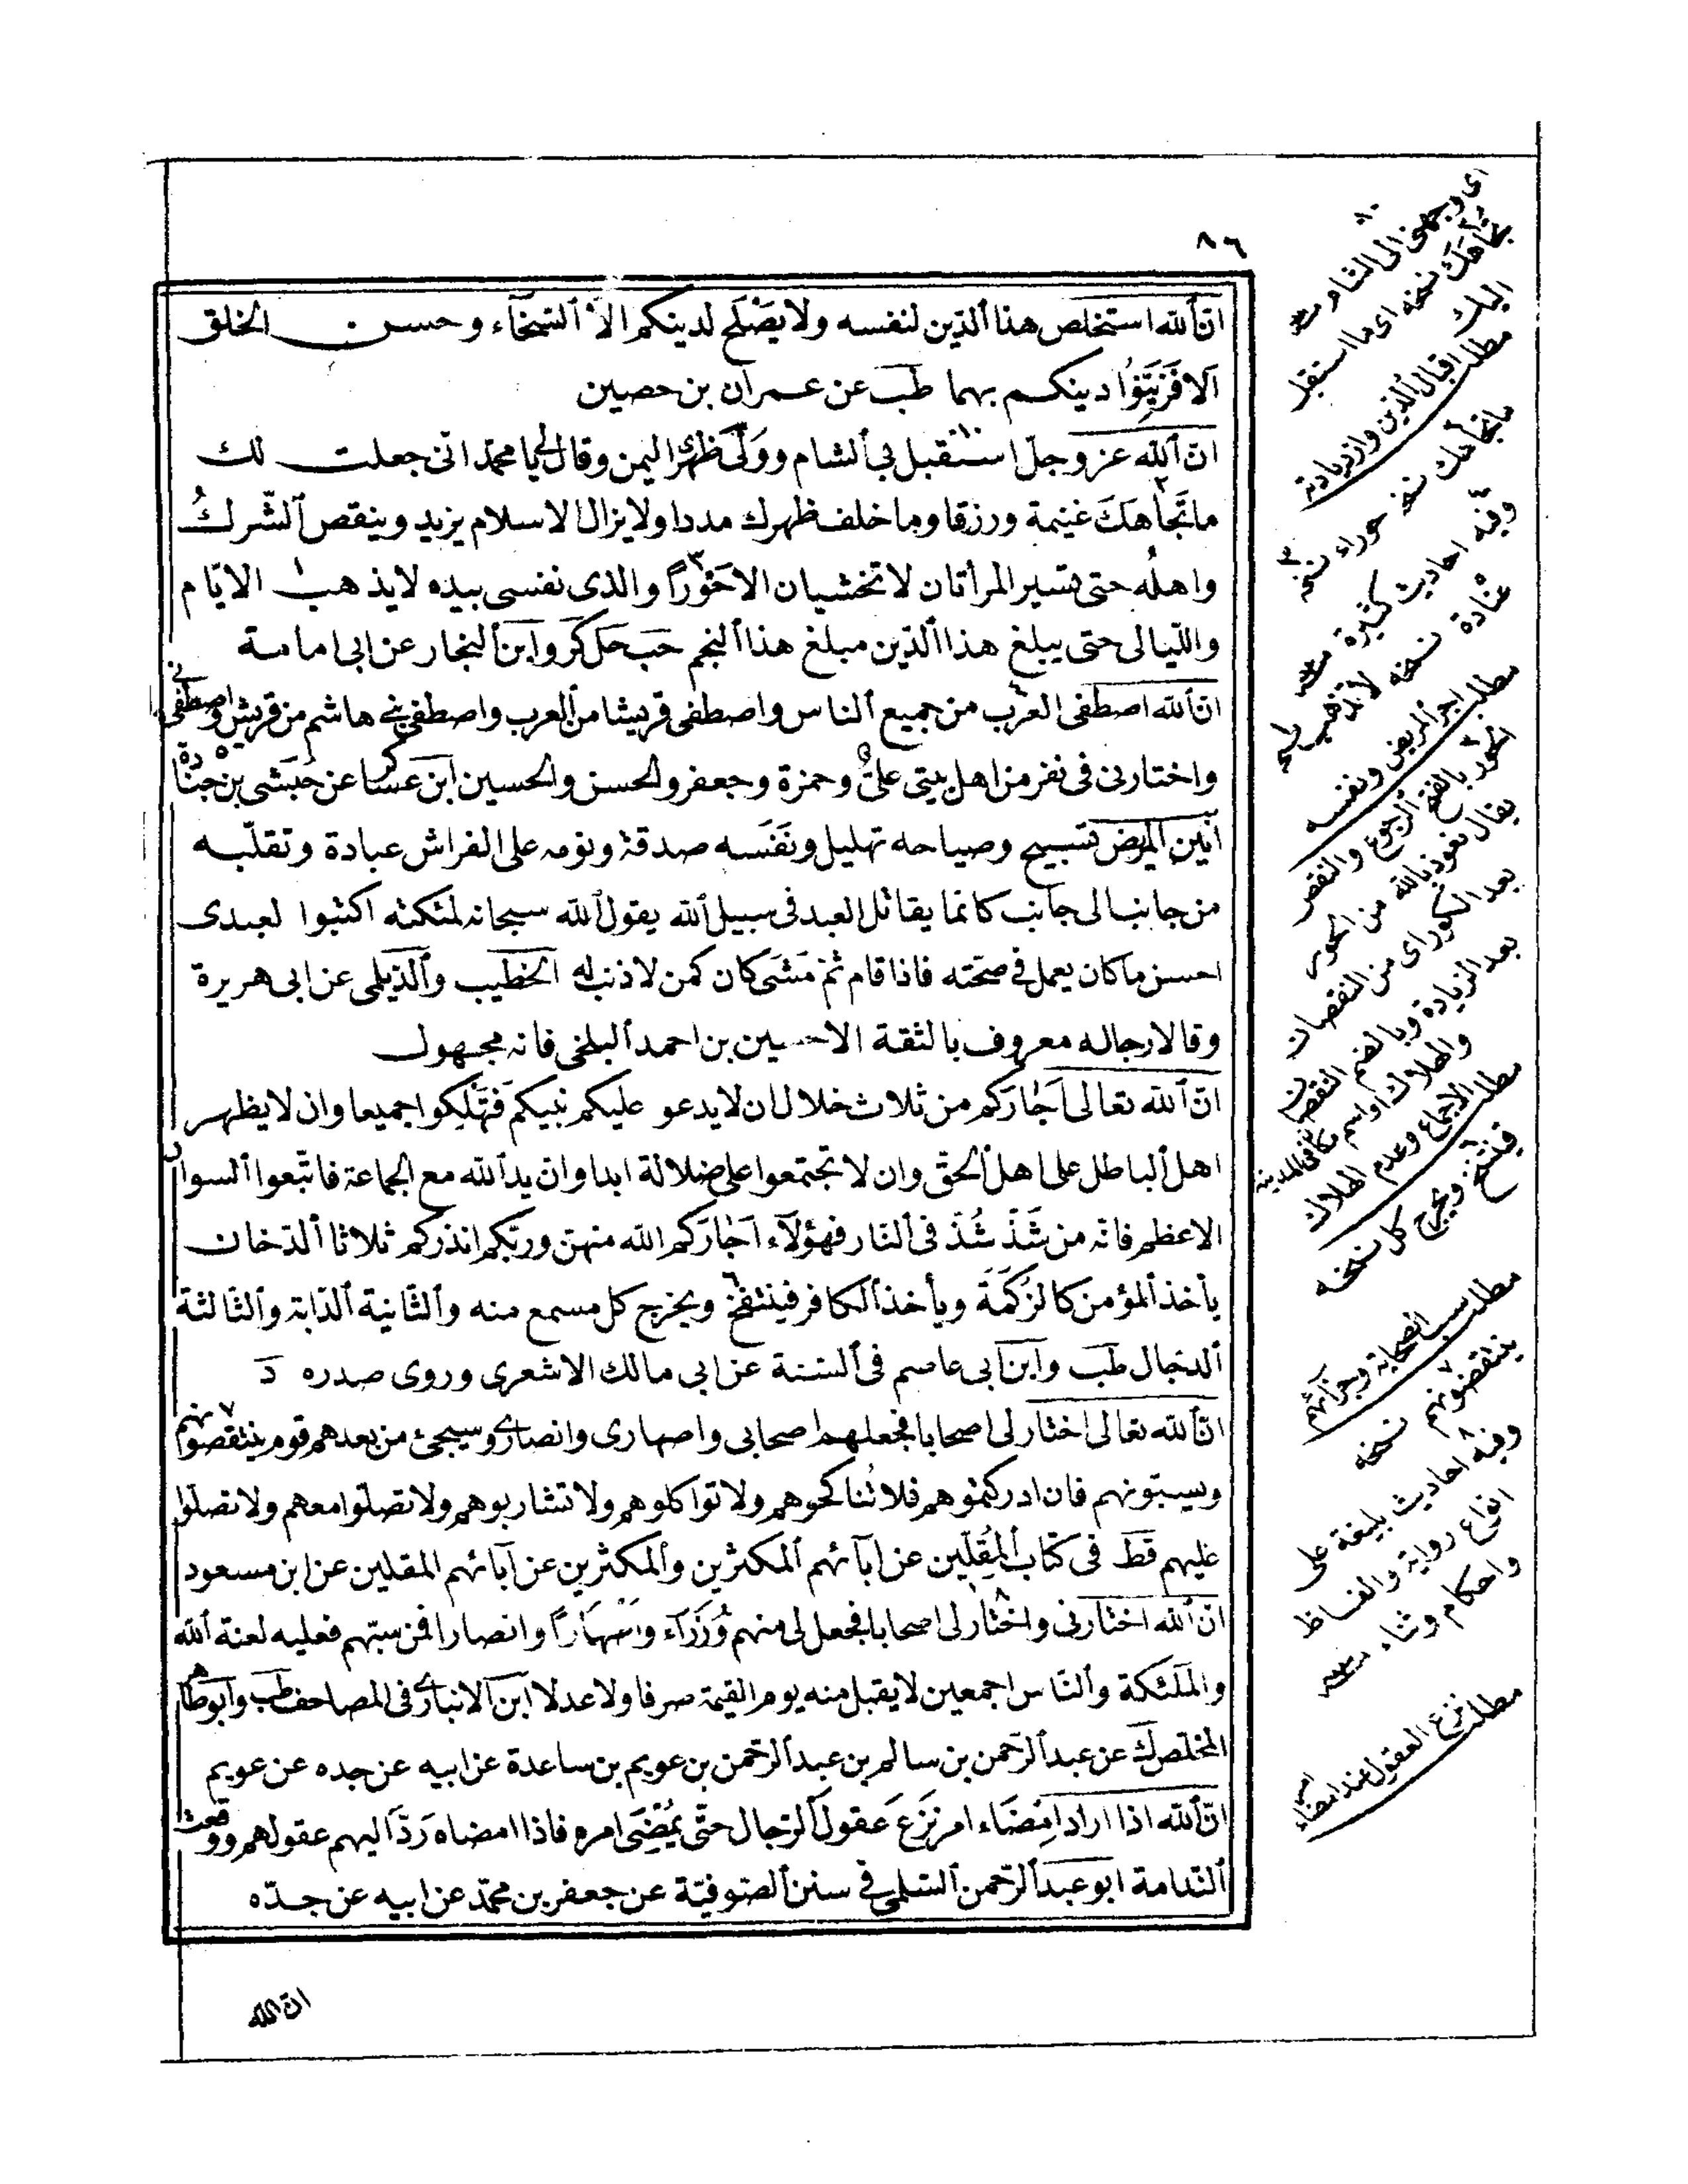 ٨٦
انّ الله استخلص هذا الدّين لنفسه ولا يصْلح لدينكم الاّ السّخاء وحسن الخلق
ألا فَزَيِّنُوا دينكم بهما طب عن عمران بن حصين
انّ الله عز وجلّ استقبل بي الشام وولّى ظهرى اليمن وقال لى يا محمّد انى جعلت لك
ما تُجاهَكَ غنيمة ورزقا وما خلف ظهرك مددا ولا يزال الاسلام يزيد وينقص الشّرك
واهلُه حتى تسير المرأتان لا تخشيان الا حَوْراً والذى نفسى بيده لا يذهب الايّام
واللّيالى حتى يبلغ هذا الدّين مبلغ هذا النجم حب حل كر وابن النجار عن ابى امامة
انّ الله اصطفى العرب من جميع الناس واصطفى قريشا من العرب واصطفى بنى هاشم من قريش واصطفانى
واختارنى فى نفر من اهل بيتى علىّ وحمزة وجعفر والحسن والحسين ابن عساكر عن حبشى بن جنادة
أنين المريض تسبيح وصياحه تهليل ونَفَسه صدقة ونومه على الفراش عبادة وتقلّبه
من جانب الى جانب كانما يقاتل العبد فى سبيل الله يقول الله سبحانه لملئكته اكتبوا لعبدى
احسن ما كان يعمل فى صحّته فاذا قام ثم مَشَى كان كمن لا ذنب له الخطيب والدّيلمى عن ابى هريرة
وقالا رجاله معروف بالثقة الا حسين بن احمد البلخى فانه مجهول
انّ الله تعالى اَجَارَكم من ثلاث خلال ان لا يدعو عليكم نبيكم فَتَهْلِكوا جميعا وان لا يظهر
اهل الباطل على اهل الحقّ وان لا تجتمعوا على ضلالة ابدا وانّ يد الله مع الجماعة فاتّبعوا السواد
الاعظم فانّه من شَذّ شُذّ فى النار فهؤلآء اَجَارَكم الله منهنّ وربّكم انذركم ثلاثا الدّخان
يأخذ المؤمن كالزّكمَة ويأخذ الكافر فينتفخ ويخرج كل مسمع منه والثّانية الدّابة والثّالثة
الدجّال طب وابن ابى عاصم فى السّنة عن ابى مالك الاشعرى وروى صدره د
انّ الله تعالى اختار لى اصحابا فجعلهم اصحابى واصهارى وانصارى وسيجئ من بعدهم قوم ينتقصونهم
ويسبّونهم فان ادركتموهم فلا تناكحوهم ولا تواكلوهم ولا تشاربوهم ولا تصلّوا معهم ولا تصلّوا
عليهم قط فى كتاب المُقِلّين عن ابآئهم المكثرين والمكثرين عن آبائهم المقلين عن ابن مسعود
انّ الله اختارنى واختار لى اصحابا فجعل لى منهم وُزَرَاء واصهاراً وانصارا فمن سبّهم فعليه لعنة الله
والملئكة والنّاس اجمعين لا يقبل منه يوم القيمة صرفا ولا عدلا ابن الانبارى فى المصاحف طب وابو طاهر
المخلص ك عن عبد الرّحمن بن سالم بن عبد الرّحمن بن عويم بن ساعدة عن ابيه عن جده عن عويم
انّ الله اذا اراد اِمْضَاء امر نزَعَ عقول الرّجال حتّى يُمْضِىَ امره فاذا امضاه رَدّ اليهم عقولهم ووقعت
النّدامة ابو عبد الرّحمن السّلمى فى سنن الصّوفيّة عن جعفر بن محمّد عن ابيه عن جدّه
ان الله
اى وجهنى الى الشام
تجاهك نسخه اى ما استقبل
اليك
مطلب اقبال الدّين وازدياده
ما تجاهك نسخه
جوراء نسخه
وفيه احاديث كثيرة
عبادة نسخه لا تذهب
مطلب اجر المريض ونفسه
الحور بالفتح الرجوع والنقص
يقال نعوذ بالله من الحور
بعد الكور اى من النقصان
بعد الزيادة وبالضم النقصان
والهلاك او اسم مكان فى المدينة
مطلب الاجماع وعدم الهلاك
فينتفخ ويخرج كل نسخه
مطلب سب الصحابة وجزائهم
ينتقضونهم نسخه
وفيه احاديث بليغة على
انواع رواية والفاظ
واحكام وثناء
مطلب نزع العقول عند امضاء امر